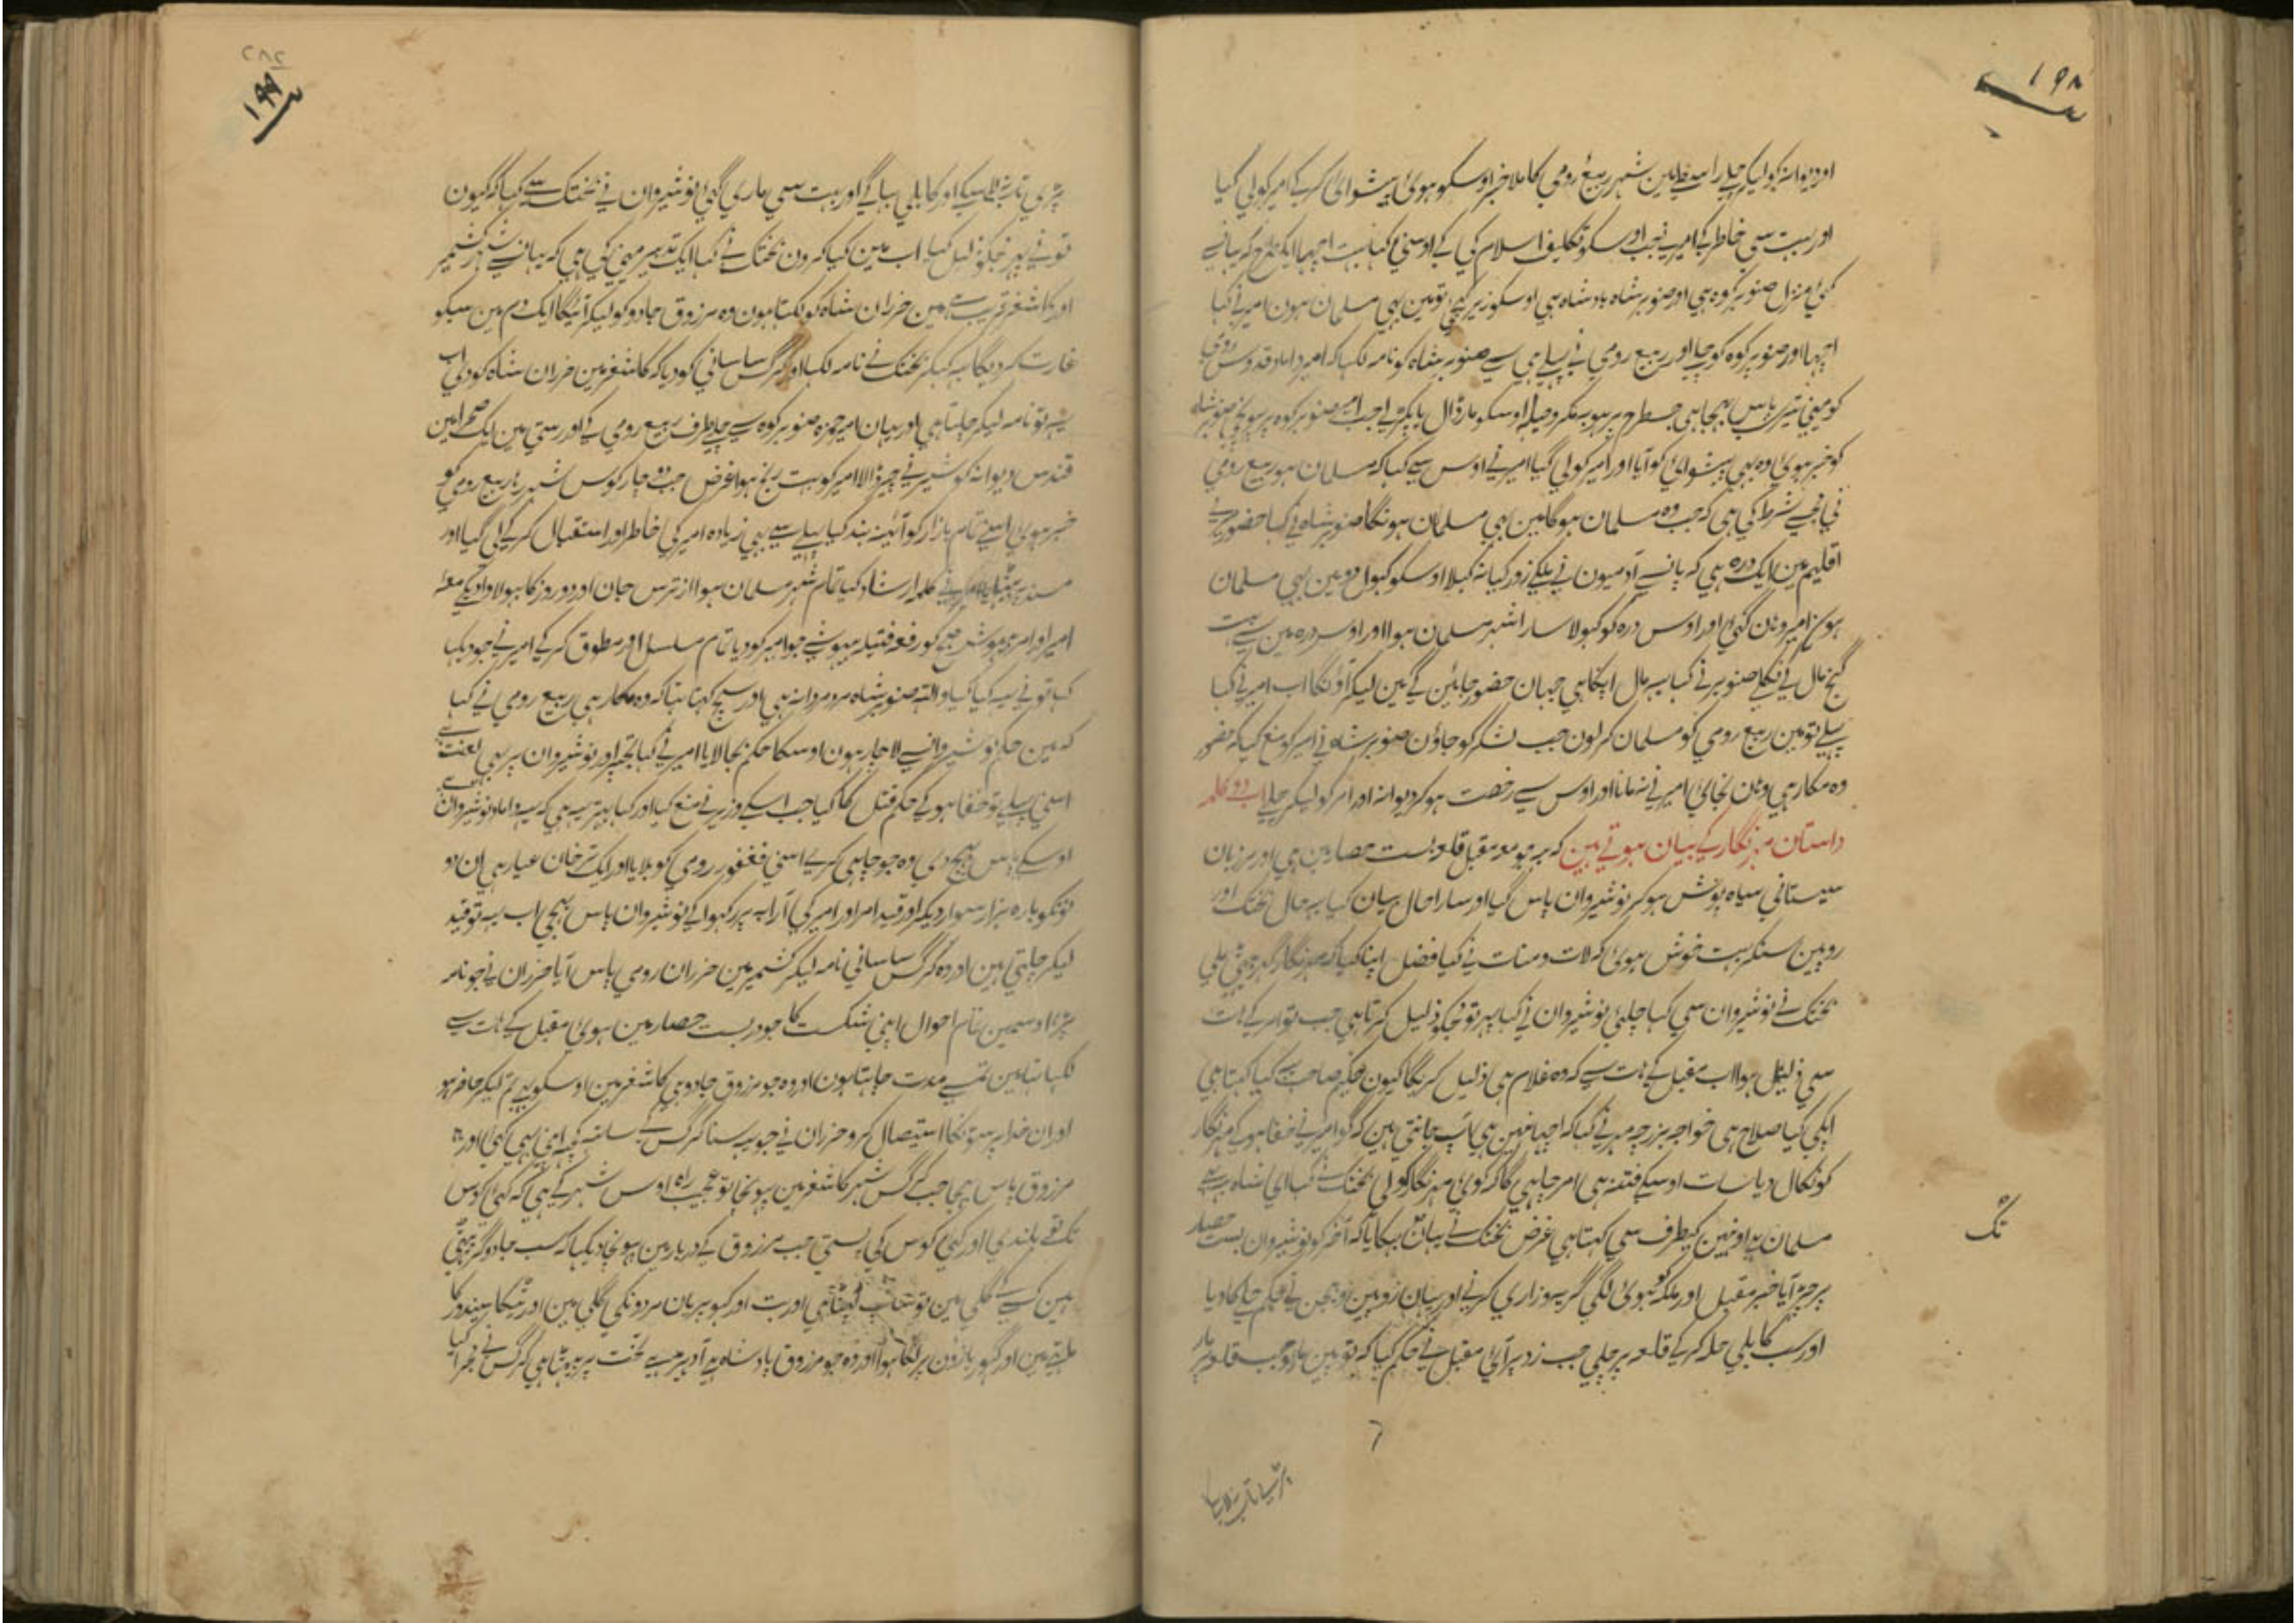 ۱۹۸
اور دیوانہ کو لیکر چلے راستے میں شہر ربیع رومی کا ملا خبر اوسکو ہوئی پیشوائی کر کے امیر کو لی گیا
اور بہت سی خاطر کے امیر نے جب اوسکو تکلیف اسلام کی کے اوسنی کہا بہت اچہا ایک طرح کہ یہانسے
کئی منزل صنوبر کوہ ہی اور صنوبر شاہ بادشاہ ہی اوسکو زیر کیجی تو مین بہی مسلمان ہون امیر نے کہا
اچہا اور صنوبر کوہ کو چلے اور ربیع رومی نے پہلے ہی سے صنوبر شاہ کو نامہ لکہا کہ امیر
کو مینی تیرے پاس بہیجا ہی جسطرح پر ہو بمکر و حیلہ اوسکو مار ڈال یا پکڑ لے جب امیر صنوبر کوہ پر پہونچی صنوبر شاہ
کو خبر ہوئی وہ بہی پیشوائی کو آیا اور امیر کو لی گیا امیر نے اوس سے کہا کہ مسلمان ہو ربیع رومی
نی مجہسے شرط کی ہی کہ جب وہ مسلمان ہوگا مین بہی مسلمان ہونگا صنوبر شاہ نے کہا حضور میرے
اقلیم مین ایک درہ ہی کہ پانسے آدمیون نے ملکے زور کیا نہ کہلا اوسکو کہولو تو مین بہی مسلمان
ہون امیر وہان گئی اور اوس درہ کو کہولا سارا شہر مسلمان ہوا اور اوس درہ مین سے بہت
گنج مال کے نکلے صنوبر نے کہا یہ مال آپکا ہی جہان حضور جائین گے مین لیکر آونگا اب امیر نے کہا
پہلے تو مین ربیع رومی کو مسلمان کر لون جب لشکر کو جاؤن صنوبر شاہ نے امیر کو منع کیا کہ حضور
وہ مکار ہی وہان نجائی امیر نے نہ مانا اور اوس سے رخصت ہو کر دیوانہ اور امر کو لیکر چلے اب دو کلمہ
داستان مہرنگار کے بیان ہوتے ہین کہ مقبل قلعہ بست حصار مین ہی اور مرزبان
سیستانی سیاہ پوش ہو کر نوشیروان پاس گیا اور سارا حال بیان کیا یہ حال بختک اور
روپین سنکر بہت خوش ہوئی کہ لات و منات نے کیا فضل اپنا کیا کہ مہرنگار
بختک نے نوشیروان سی کہا چلئی نوشیروان نے کہا پہر تو مجکو ذلیل کرتا ہی جب تو امر کے ہات
سی ذلیل ہوا اب مقبل کے ہات سے کہ وہ غلام ہی ذلیل کریگا کیون حکیم صاحب سے کیا کہتا ہی
آپکی کیا صلاح ہی خواجہ بزرجمہر نے کہا کہ اچہا نہین ہی آپ جانتی ہین کہ گو امیر نے خفا ہو کے مہرنگار
کو نکال دیا اوسکے فتنہ ہی امر چاہیگا کہ کوئی مہرنگار کو لی بختک نے کہا ای شاہ یہ
مسلمان ہی اونہین کیطرف سی کہتا ہی غرض بختک نے یہان بہکایا کہ آخر کو نوشیروان بست حصار
پر چڑہ آیا خبر مقبل اور ملکہ کو ہوئی لگی گریہ و زاری کرنے اور یہان روپین و بہمن نے حکم حملہ کا دیا
اور سب کابلی حملہ کر کے قلعہ پر چلی جب زد پر آئی مقبل نے حکم کیا کہ توپین مارو جب قلعہ پر
تک
۱۹۹
نوشیروان نے بختک سے کہا کہ کیون
تونے پہر مجکو ذلیل کیا اب مین کیا کرون بختک نے کہا ایک تدبیر مینی کی ہی کہ یہانسے شہر کشمیر
اور کاشغر قریب ہے مین خزران شاہ کو لکہتا ہون وہ مرزوق جادو کو لیکر آئیگا ایک دم مین سبکو
غارت کر دیگا یہ کہکر بختک نے نامہ لکہا اور کرگس ساسانی کو دیا کہ کاشغر مین خزران شاہ کو دی اب
یہ تو نامہ لیکر چلتا ہی اور یہان امیر حمزہ صنوبر کوہ سے چلے طرف ربیع رومی کے اور رستی مین ایک صحرا مین
قندس دیوانہ کو شیر نے چیر ڈالا امیر کو بہت رنج ہوا غرض جب دو چار کوس شہر رہا ربیع رومی کو
خبر ہوئی اسنے تمام بازار کو آئینہ بند کیا پہلے سے بہی زیادہ امیر کی خاطر اور استقبال کر کے لی گیا اور
مسند پر بٹہایا امیر نے کلمہ ارشاد کیا تمام شہر مسلمان ہوا از ترس جان اور دو روز کا بہولا وا دیکے معہ
امیر اور امر بیہوش صبح کو رفع فتیلہ بیہوشی جو امیر کو دیا تمام مسلسل اور مطوق کر کے امیر نے جو دیکہا
کہا تونے یہ کیا کیا واللہ صنوبر شاہ مرد مردانہ ہی اور سچ کہتا تہا کہ وہ مکار ہی ربیع رومی نے کہا
کہ مین حکم نوشیروانسے لاچار ہون اوسکا حکم بجا لایا امیر نے کہا تجہپر اور نوشیروان پر بہی لعنت ہے
اسنی پہلے تو خفا ہو کے حکم قتل کا کیا جب اسکے وزیر نے منع کیا اور کہا بہتر یہ ہی کہ یہ داماد نوشیروان ہے
اوسکے پاس بہیجدی وہ جو چاہی کرے اسنی فغفور رومی کو بلایا اور ایک ترخان عیار ہی ان دو
نونکو بارہ ہزار سوار دیکر اور قید امر اور امیر کی آرابہ پر رکہوا کے نوشیروان پاس بہیجی اب یہ تو قید
لیکر چلتی ہین اور وہ کرگس ساسانی نامہ لیکر کشمیر مین خزران رومی پاس آیا خزران نے جو نامہ
پڑہا اوسمین تمام احوال اپنی شکست کا جو در بست حصار مین ہوئی مقبل کے ہات سے
لکہا تہا مین تمسے مدت چاہتا ہون اور وہ جو مرزوق جادو ہی کاشغر مین اوسکو بہی تم لیکر حاضر ہو
اور ان خدا پرستونکا استیصال کرو خزران نے جو یہ سنا کرگس کے
مرزوق پاس بہیجا جب کرگس شہر کاشغر مین پہونچا تو عجیب راہ اوس شہر کے ہی کہ کئی کوس
تک تو بلندی اور کئی کوس کی پستی جب مرزوق کے دربار مین پہونچا دیکہا کہ سب جادوگر بیٹہی
ہین کسی کے گلی مین تو سانپ لپٹا ہی اور بت اور کہوپریان مردونکی گلی مین اور ٹیکا سیندور کا
اور وہ جو مرزوق بادشاہ ہی تخت پر بیٹہا ہی کرگس نے مجرا کیا